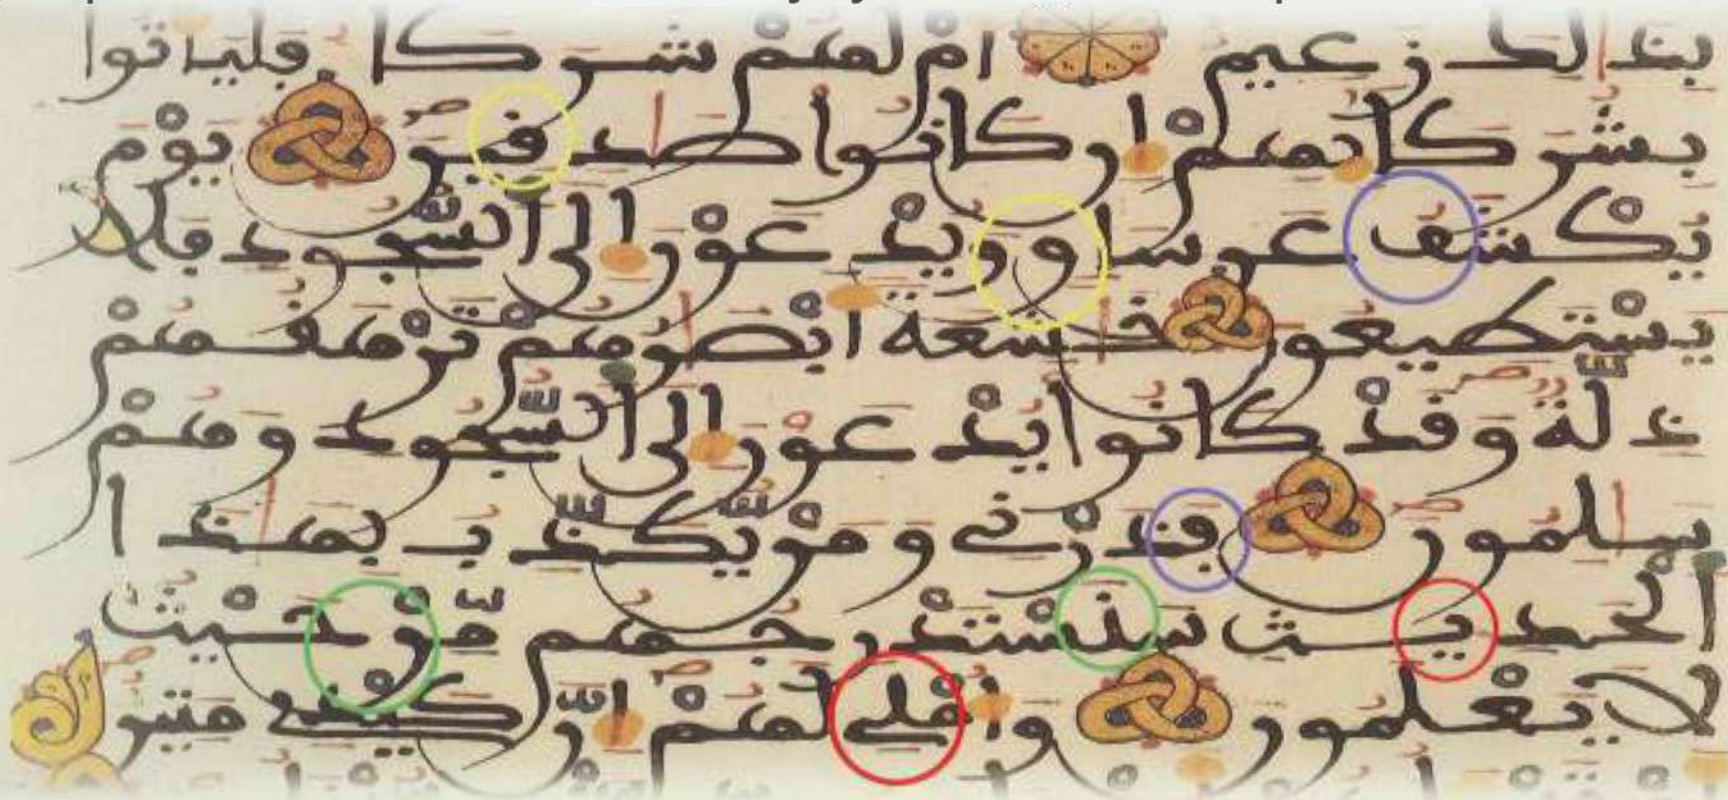 بذالك زعيم ام لهم شركا فلياتوا
بشركايهم ان كانوا صدفين يوم
يكشف عن ساق ويدعون الى السجود فلا
يستطيعون خشعة ابصرهم ترهفهم
ذلة وفد كانوا يدعون الى السجود وهم
سلمون فذرني ومن يكذب بهذا ا
لحديث سنستدرجهم من حيث
لا يعلمون واملي لهم ان كيدي متين